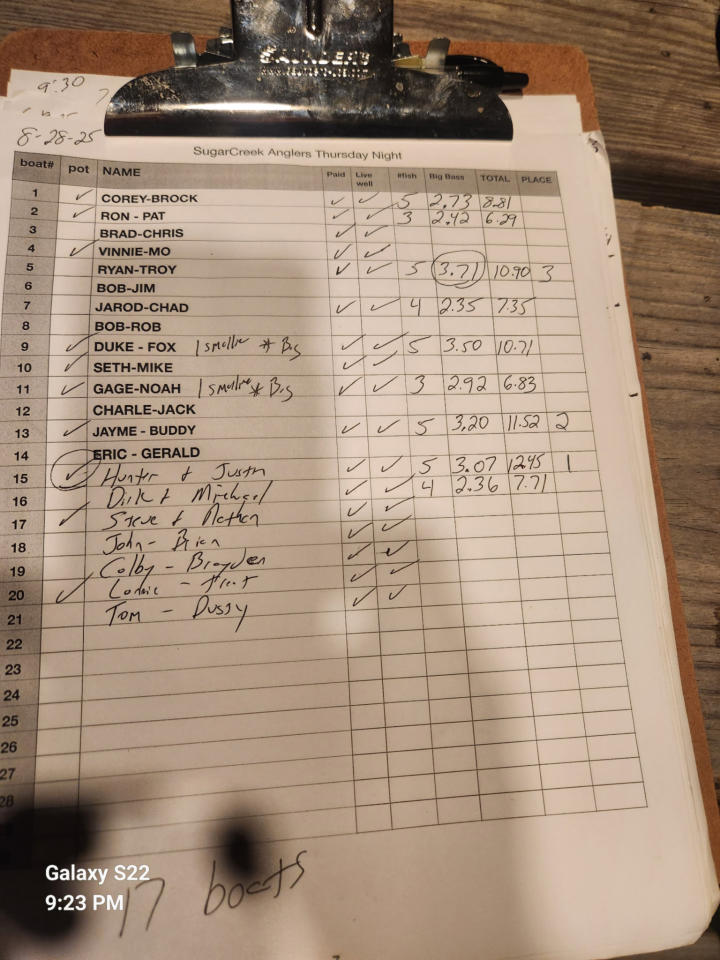 SAUNDERS
9:30
8-28-25
SugarCreek Anglers Thursday Night
boat# pot NAME Paid Live well #fish Big Bass TOTAL PLACE
1 ✓ COREY-BROCK ✓ ✓ 5 2.73 8.81
2 ✓ RON - PAT ✓ ✓ 3 2.42 6.29
3 BRAD-CHRIS ✓ ✓
4 ✓ VINNIE-MO ✓ ✓
5 RYAN-TROY ✓ ✓ 5 3.71 10.90 3
6 BOB-JIM
7 JAROD-CHAD ✓ ✓ 4 2.35 7.35
8 BOB-ROB
9 ✓ DUKE - FOX 1 smallie * Big ✓ ✓ 5 3.50 10.71
10 ✓ SETH-MIKE ✓ ✓
11 ✓ GAGE-NOAH 1 smallie * Big ✓ ✓ 3 2.92 6.83
12 CHARLE-JACK
13 ✓ JAYME - BUDDY ✓ ✓ 5 3.20 11.52 2
14 ERIC - GERALD
15 ✓ Hunter & Justin ✓ ✓ 5 3.07 12.45 1
16 Dirk & Michael ✓ ✓ 4 2.36 7.71
17 ✓ Steve & Nathan ✓ ✓
18 John - Brian ✓ ✓
19 Colby - Brayden ✓ ✓
20 ✓ Lonnie - ✓ ✓
21 Tom - Dusty ✓ ✓
22
23
24
25
26
27
28
17 boats
Galaxy S22
9:23 PM